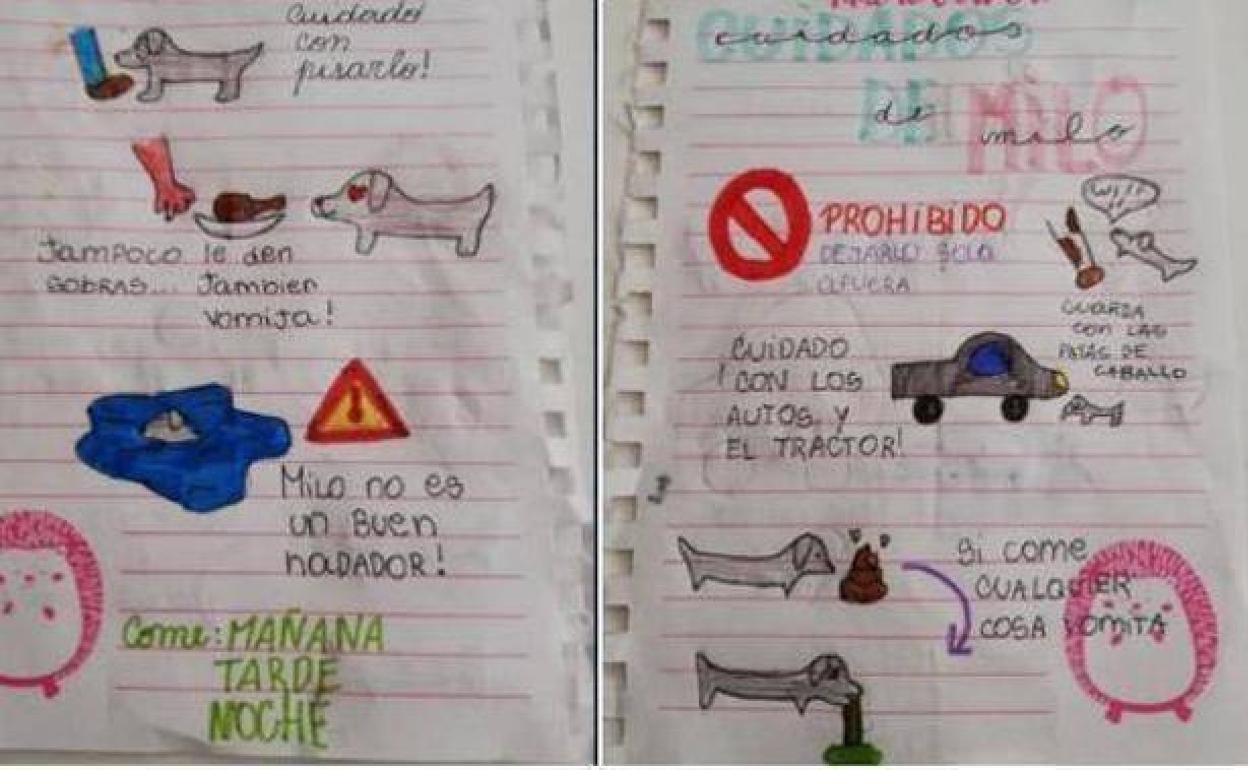 Cuidado!
con
pisarlo!
Tampoco le den
SOBRAS... Tambien
vomita!
Milo no es
un Buen
naDADOR!
Come: MAÑANA
TARDE
NOCHE
CUIDADOS
cuidados
DE MILO
de milo
PROHIBIDO
DEJARLO SOLO
AFUERA
WI!!
CUIDADO
CON LAS
PATAS DE
CABALLO
¡CUIDADO
CON LOS
AUTOS y
EL TRACTOR!
Si come
CUALQUIER
COSA VOMITA